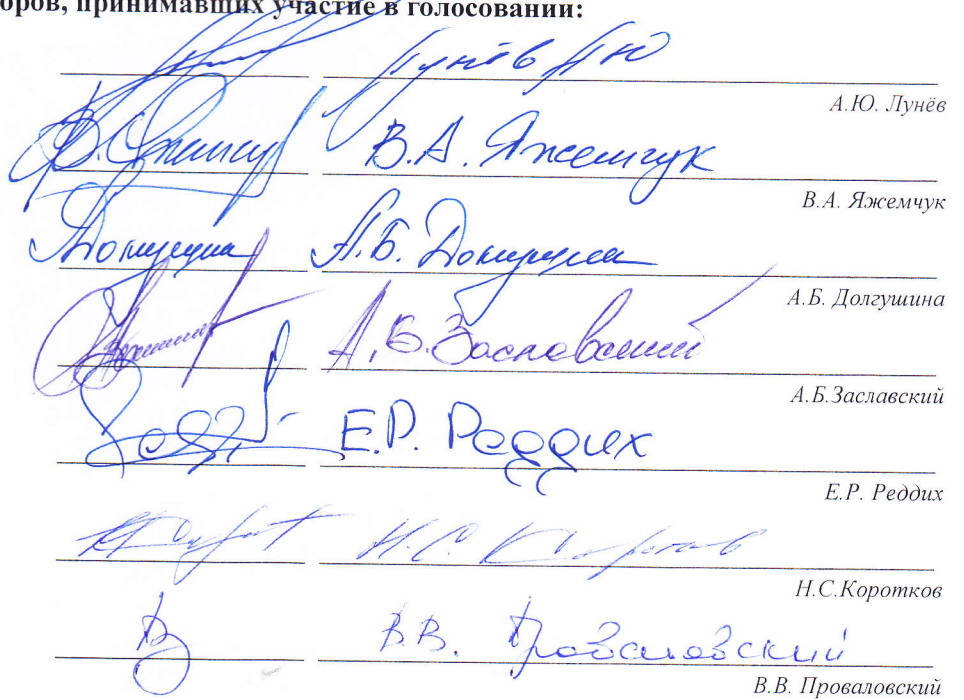 оров, принимавших участие в голосовании:
Лунёв АЮ
А.Ю. Лунёв
В.А. Яжемчук
В.А. Яжемчук
Долгушина А.Б. Долгушина
А.Б. Долгушина
А.Б. Заславский
А.Б.Заславский
Е.Р. Реддих
Е.Р. Реддих
Н.С. Коротков
Н.С.Коротков
В.В. Проваловский
В.В. Проваловский